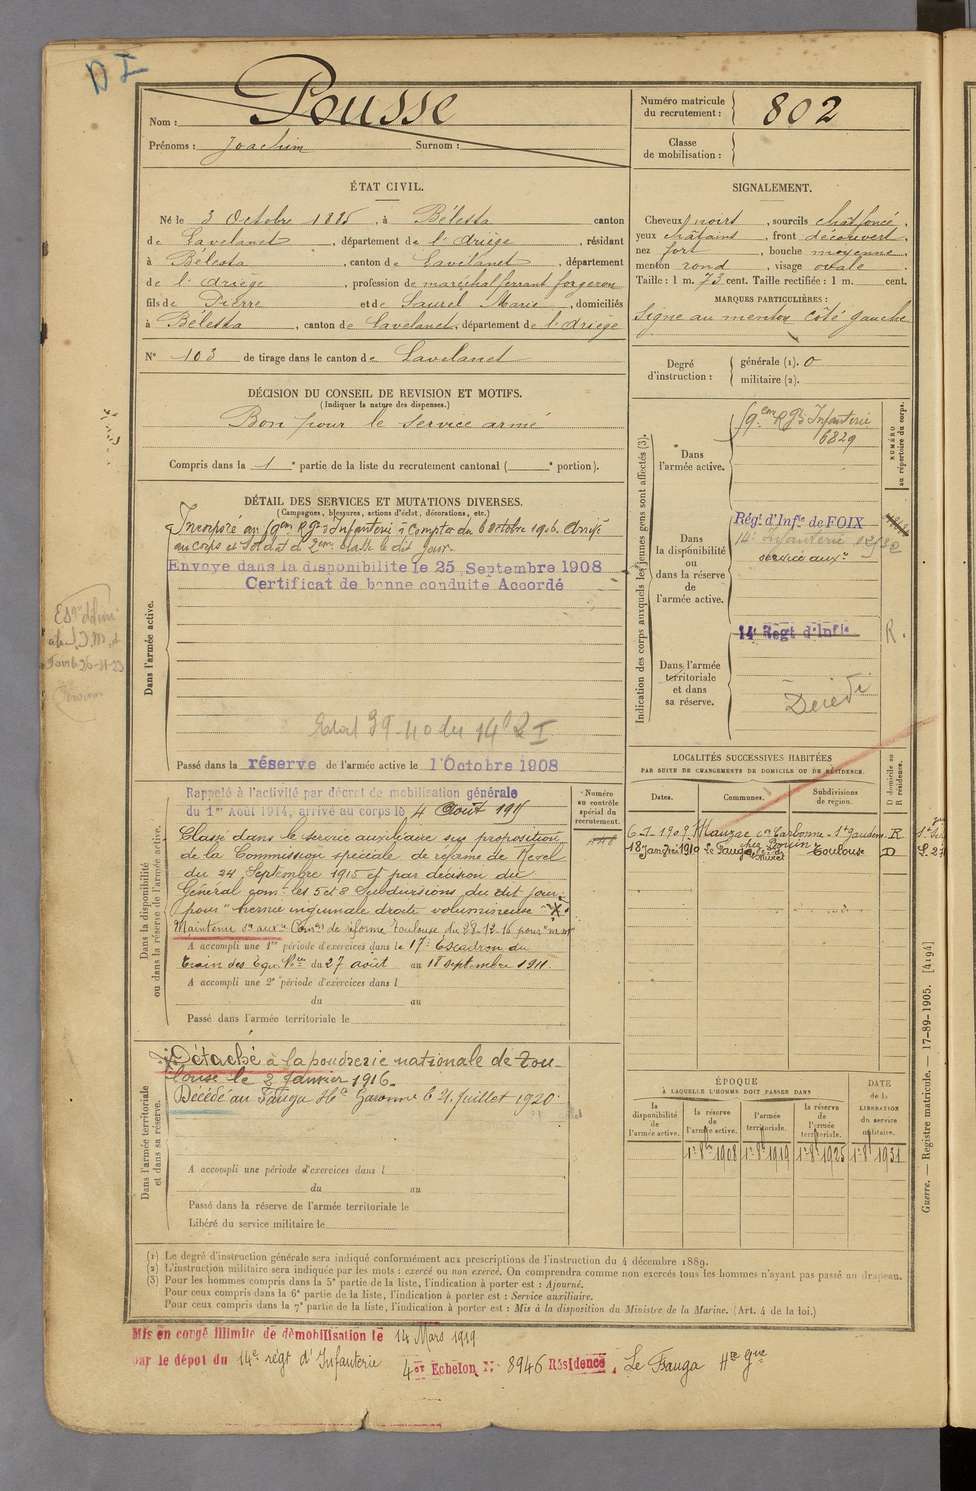 D I
Nom : Pousse
Prénoms : Joachim Surnom :
Numéro matricule
du recrutement : 802
Classe
de mobilisation :
ÉTAT CIVIL.
Né le 3 Octobre 1885, à Bélesta canton
de Lavelanet, département de l'Ariège, résidant
à Bélesta, canton de Lavelanet, département
de l'Ariège, profession de maréchal ferrant forgeron
fils de Pierre et de Saurel Marie, domiciliés
à Bélesta, canton de Lavelanet, département de l'Ariège
N° 103 de tirage dans le canton de Lavelanet
SIGNALEMENT.
Cheveux noirs, sourcils chât foncé,
yeux châtains, front découvert,
nez fort, bouche moyenne,
menton rond, visage ovale.
Taille : 1 m. 73 cent. Taille rectifiée : 1 m. cent.
MARQUES PARTICULIÈRES :
Signe au menton côté gauche
Degré
d'instruction :
générale (1). 0
militaire (2).
DÉCISION DU CONSEIL DE REVISION ET MOTIFS.
(Indiquer la nature des dispenses.)
Bon pour le service armé
Compris dans la 1e partie de la liste du recrutement cantonal ( e portion).
DÉTAIL DES SERVICES ET MUTATIONS DIVERSES.
(Campagnes, blessures, actions d'éclat, décorations, etc.)
Dans l'armée active.
Incorporé au 9em Rgt d'Infanterie à compter du 6 octobre 1906. Arrivé
au corps et soldat de 2eme classe le dit jour.
Envoyé dans la disponibilité le 25 Septembre 1908
Certificat de bonne conduite Accordé
Etat 39-40 du 14e R I
Passé dans la réserve de l'armée active le 1 Octobre 1908
Indication des corps auxquels les jeunes gens sont affectés (3).
NUMÉRO
au répertoire du corps.
Dans
l'armée active.
9em Rgt Infanterie
6829
Dans
la disponibilité
ou
dans la réserve
de
l'armée active.
Régt d'Infie de FOIX
14e Infanterie
service auxre
14e Régt d'Infie
R.
Dans l'armée
territoriale
et dans
sa réserve.
Décédé
LOCALITÉS SUCCESSIVES HABITÉES
PAR SUITE DE CHANGEMENTS DE DOMICILE OU DE RÉSIDENCE.
Dates. Communes. Subdivisions
de région.
D domicile ou
R résidence.
6-I-1909 Mauzac con Carbonne St Gaudens R
18 Janvier 1910 Le Fauga Muret Toulouse D
Dans la disponibilité
ou dans la réserve de l'armée active.
Numéro
au contrôle
spécial du
recrutement.
Rappelé à l'activité par décret de mobilisation générale
du 1er Août 1914, arrivé au corps le 4 Août 1914
Classé dans le service auxiliaire sur proposition
de la Commission spéciale de réforme de Revel
du 24 Septembre 1915 et par décision du
Général comt les 5 et 8 Subdivisions du dit jour
pour "hernie inguinale droite volumineuse" X
Maintenu sce auxre Comon de réforme Toulouse du 28-12-16 pour "m m"
A accompli une 1re période d'exercices dans le 17e Escadron du
train des Equ. Mres du 27 août au 18 septembre 1911.
A accompli une 2e période d'exercices dans l
du au
Passé dans l'armée territoriale le
Dans l'armée territoriale
et dans sa réserve.
Détaché à la poudrerie nationale de Tou-
louse le 2 Janvier 1916.
Décédé au Fauga Hte Garonne le 21 Juillet 1920.
A accompli une période d'exercices dans l
du au
Passé dans la réserve de l'armée territoriale le
Libéré du service militaire le
ÉPOQUE
À LAQUELLE L'HOMME DOIT PASSER DANS
la
disponibilité
de
l'armée active.
la réserve
de
l'armée active.
l'armée
territoriale.
la réserve
de
l'armée
territoriale.
DATE
de la
LIBÉRATION
du service
militaire.
1er 8bre 1908 1er 8bre 1919 1er 8bre 1925 1er 8bre 1931
Guerre. — Registre matricule. — 17-89-1905. [4194]
(1) Le degré d'instruction générale sera indiqué conformément aux prescriptions de l'instruction du 4 décembre 1889.
(2) L'instruction militaire sera indiquée par les mots : exercé ou non exercé. On comprendra comme non exercés tous les hommes n'ayant pas passé au drapeau.
(3) Pour les hommes compris dans la 5e partie de la liste, l'indication à porter est : Ajourné.
Pour ceux compris dans la 6e partie de la liste, l'indication à porter est : Service auxiliaire.
Pour ceux compris dans la 7e partie de la liste, l'indication à porter est : Mis à la disposition du Ministre de la Marine. (Art. 4 de la loi.)
Mis en congé illimité de démobilisation le 14 Mars 1919
par le dépôt du 14e régt d'Infanterie 4er Echelon N° 8946 Résidence, Le Fauga Hte Gne